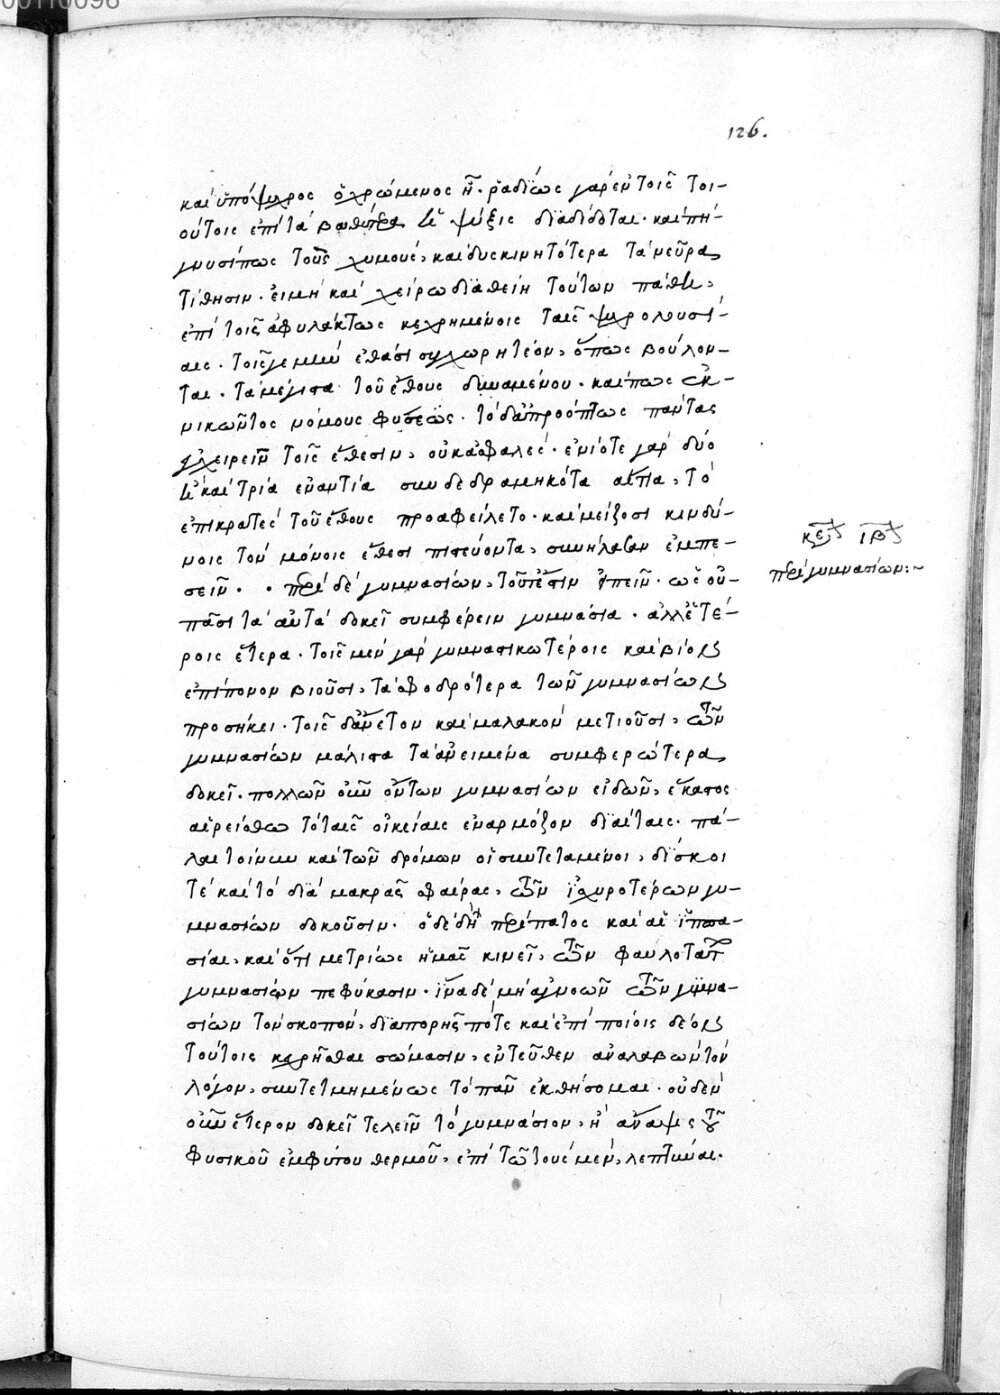 00110098
126.
καὶ ὑπόψυχρος ὁ χρώμενος ᾖ. ῥᾳδίως γὰρ ἐν τοῖς τοι-
ούτοις ἐπὶ τὰ βαθύτερα ἡ ψύξις διαδίδοται. καὶ πή-
γνυσί πως τοὺς χυμούς, καὶ δυσκινητότερα τὰ νεῦρα
τίθησιν. εἰ μὴ καὶ χείρω διαθείη τούτων πάθη,
ἐπὶ τοῖς ἀφυλάκτως κεχρημένοις ταῖς ψυχρολουσί-
αις. τοῖς γε μὴν ἔθεσι συγχωρητέον, ὅπως βούλον-
ται. τὰ μέγιστα τοῦ ἔθους δυναμένου. καί πως ἐκ-
νικῶντος νόμους φύσεως. τὸ δ' ἀπροόπτως πάντας
ἐγχειρεῖν τοῖς ἔθεσιν, οὐκ ἀσφαλές. ἐνίοτε γὰρ δύο
ἢ καὶ τρία ἐναντία συνδεδραμηκότα αἴτια, τὸ
ἐπικρατὲς τοῦ ἔθους προαφείλετο. καὶ μείζοσι κινδύ-
νοις τὸν μόνοις ἔθεσι πιστεύοντα, συνήλασαν ἐμπε-
σεῖν. . περὶ δὲ γυμνασίων, τοῦτ' ἔστιν εἰπεῖν. ὡς οὐ-
πᾶσι τὰ αὐτὰ δοκεῖ συμφέρειν γυμνάσια. ἀλλ' ἑτέ-
ροις ἕτερα. τοῖς μὲν γὰρ γυμναστικωτέροις καὶ βίον
ἐπίπονον βιοῦσι, τὰ σφοδρότερα τῶν γυμνασίων
προσήκει. τοῖς δ' ἄνετον καὶ μαλακὸν μετιοῦσι, τῶν
γυμνασίων μάλιστα τὰ ἀνειμένα συμφερώτερα
δοκεῖ. πολλῶν οὖν ὄντων γυμνασίων εἰδῶν, ἕκαστος
αἱρείσθω τὸ ταῖς οἰκείαις ἐναρμόζον διαίταις. πά-
λαι τοίνυν καὶ τῶν δρόμων οἱ συντεταμένοι, δίσκοι
τὲ καὶ τὸ διὰ μακρᾶς σφαίρας, τῶν ἰσχυροτέρων γυ-
μνασίων δοκοῦσιν. ὁ δὲ δὴ περίπατος καὶ αἱ ἱππα-
σίαι, καὶ ὅτι μετρίως ἡμᾶς κινεῖ, τῶν φαυλοτάτων
γυμνασίων πεφύκασιν. ἵνα δὲ μὴ ἀγνοῶν τῶν γυμνα-
σίων τὸν σκοπὸν, διαπορῇς πότε καὶ ἐπὶ ποίοις δέον
τούτοις κεχρῆσθαι σώμασιν, ἐντεῦθεν ἀναλαβὼν τὸν
λόγον, συντετμημένως τὸ πᾶν ἐκθήσομαι. οὐδὲν
οὖν ἕτερον δοκεῖ τελεῖν τὸ γυμνάσιον, ἢ ἄναψις τοῦ
φυσικοῦ ἐμφύτου θερμοῦ, ἐπὶ τῶ τοὺς μὲν, λεπτῦναι.
κεφ ιβον
περὶ γυμνασίων:~